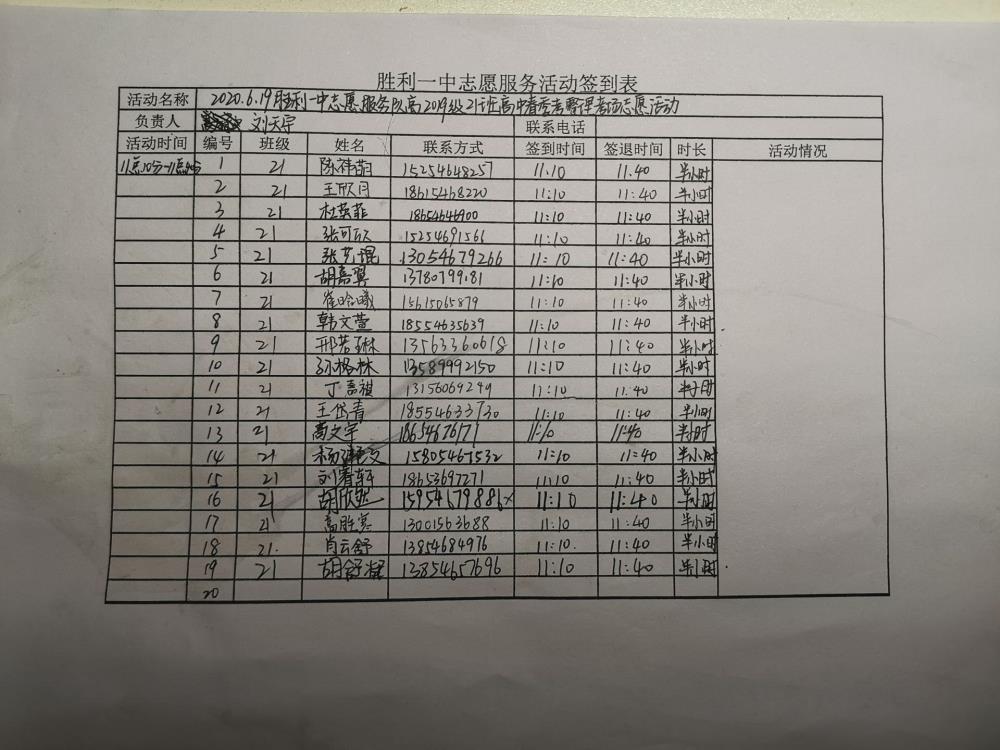 胜利一中志愿服务活动签到表
活动名称 2020.6.19胜利一中志愿服务队高2019级21班高中 考场志愿活动
负责人 刘天宇 联系电话
活动时间 编号 班级 姓名 联系方式 签到时间 签退时间 时长 活动情况
11点10分-11点40分 1 21 陈祎萌 15254648257 11:10 11.40 半小时
2 21 王欣月 18615468220 11:10 11:40 半小时
3 21 杜英菲 18654646900 11:10 11:40 半小时
4 21 张可欣 15254691566 11:10 11:40 半小时
5 21 张艺琨 13054679266 11:10 11:40 半小时
6 21 胡嘉翼 11:10 11:40 半小时
7 21 崔晗曦 15615065879 11:10 11:40 半小时
8 21 韩文萱 18554635639 11:10 11:40 半小时
9 21 邢若琳 13563360618 11:10 11:40 半小时
10 21 孙格林 13589992150 11:10 11:40 半小时
11 21 丁嘉祺 13156069299 11:10 11:40 半小时
12 21 王岱青 18554633730 11:10 11:40 半小时
13 21 高文宇 11:10 11:40 半小时
14 21 杨 文 15805461532 11:10 11:40 半小时
15 21 刘睿轩 18653697271 11:10 11:40 半小时
16 21 胡欣然 15954679886 11:10 11:40 半小时
17 21 高胜寒 13001563688 11:10 11:40 半小时
18 21. 肖云舒 13854684976 11:10. 11:40 半小时
19 21 胡舒 13854657696 11:10 11:40 半小时
20